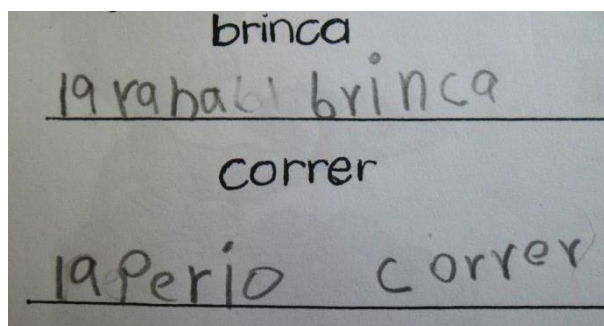 brinca
la rana brinca
correr
la Perio correr